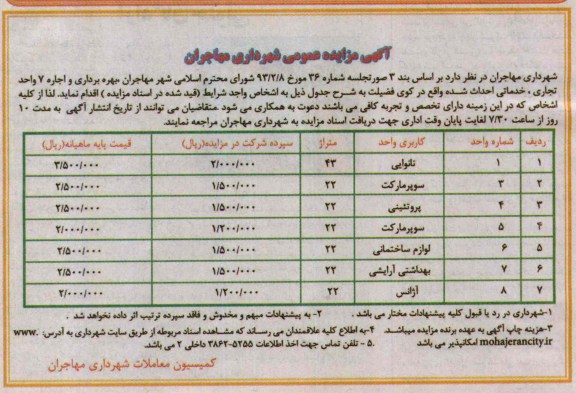 آگهی مزایده عمومی شهرداری مهاجران
شهرداری مهاجران در نظر دارد بر اساس بند ۳ صورتجلسه شماره ۳۶ مورخ ۹۳/۲/۸ شورای محترم اسلامی شهر مهاجران بهره برداری و اجاره ۷ واحد
تجاری . خدماتی احداث شده واقع در کوی فضیلت به شرح جدول ذیل به اشخاص واجد شرایط (قید شده در اسناد مزایده ) اقدام نماید. لذا از کلیه
اشخاص که در این زمینه دارای تخصص و تجربه کافی می باشند دعوت به همکاری می شود .متقاضیان می توانند از تاریخ انتشار آگهی به مدت ۱۰
روز از ساعت ۷/۳۰ لغایت پایان وقت اداری جهت دریافت اسناد مزایده به شهرداری مهاجران مراجعه نمایند.
ردیف شماره واحد کاربری واحد متراژ سپرده شرکت در مزایده(ریال) قیمت پایه ماهیانه(ریال)
۱ ۱ نانوایی ۴۳ ۲/۰۰۰/۰۰۰ ۳/۵۰۰/۰۰۰
۲ ۳ سوپرمارکت ۲۲ ۱/۵۰۰/۰۰۰ ۲/۵۰۰/۰۰۰
۳ ۴ پروتئینی ۲۲ ۱/۵۰۰/۰۰۰ ۲/۵۰۰/۰۰۰
۴ ۵ سوپرمارکت ۲۲ ۱/۲۰۰/۰۰۰ ۲/۰۰۰/۰۰۰
۵ ۶ لوازم ساختمانی ۲۲ ۱/۵۰۰/۰۰۰ ۲/۵۰۰/۰۰۰
۶ ۷ بهداشتی آرایشی ۲۲ ۱/۵۰۰/۰۰۰ ۲/۵۰۰/۰۰۰
۷ ۸ آژانس ۲۲ ۱/۲۰۰/۰۰۰ ۲/۰۰۰/۰۰۰
۱-شهرداری در رد یا قبول کلیه پیشنهادات مختار می باشد . ۲- به پیشنهادات مبهم و مخدوش و فاقد سپرده ترتیب اثر داده نخواهد شد .
۳-هزینه چاپ آگهی به عهده برنده مزایده میباشد. ۴-به اطلاع کلیه علاقمندان می رساند که مشاهده اسناد مربوطه از طریق سایت شهرداری به آدرس: www.
mohajerancity.ir امکانپذیر می باشد .۵ - تلفن تماس جهت اخذ اطلاعات ۵۲۵۵-۳۸۶۲ داخلی ۲ می باشد.
کمیسیون معاملات شهرداری مهاجران